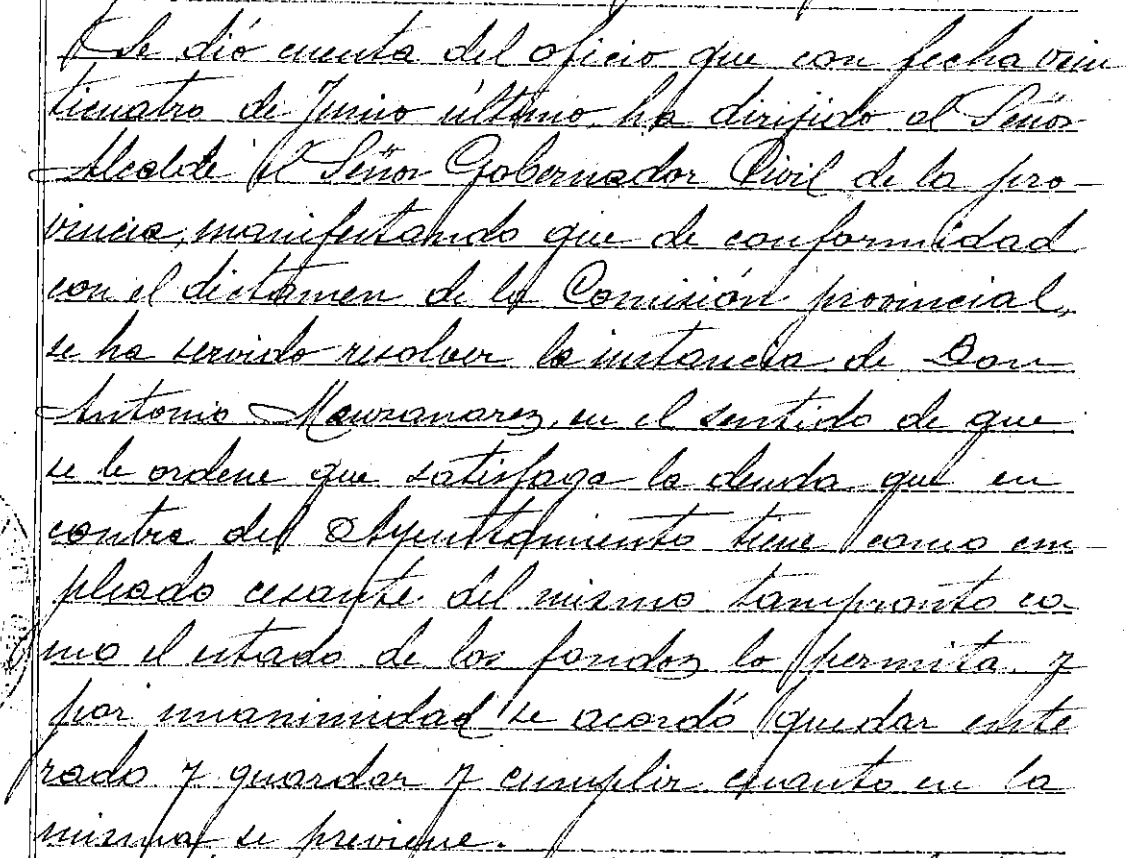 Se dió cuenta del oficio que con fecha vein
ticuatro de Junio último, ha dirijido al Señor
Alcalde el Señor Gobernador Civil de la pro-
vincia, manifestando que de conformidad
con el dictámen de la Comisión provincial,
se ha servido resolver la instancia de Don
Antonio Manzanarez, en el sentido de que
se le ordene que satisfaga la deuda que en
contra del Ayuntamiento tiene como em-
pleado cesante del mismo tampronto co-
mo el estado de los fondos lo permita. y
por unanimidad se acordó quedar ente
rado y guardar y cumplir cuanto en la
misma se previene.